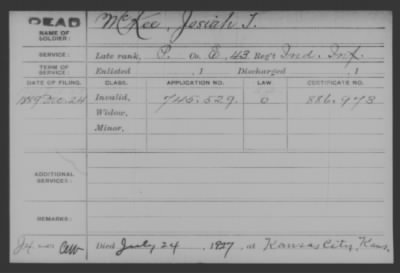 DEAD McKee, Josiah T.
NAME OF SOLDIER:
SERVICE: Late rank, P. Co. E, 43 Reg't Ind. Inf.
TERM OF SERVICE: Enlisted , 1 Discharged , 1
DATE OF FILING. CLASS. APPLICATION NO. LAW. CERTIFICATE NO.
1889 Dec. 24 Invalid, 745.529. 886.973
Widow,
Minor,
ADDITIONAL SERVICES:
REMARKS:
Died July 24, 1927, at Kansas City, Kans.